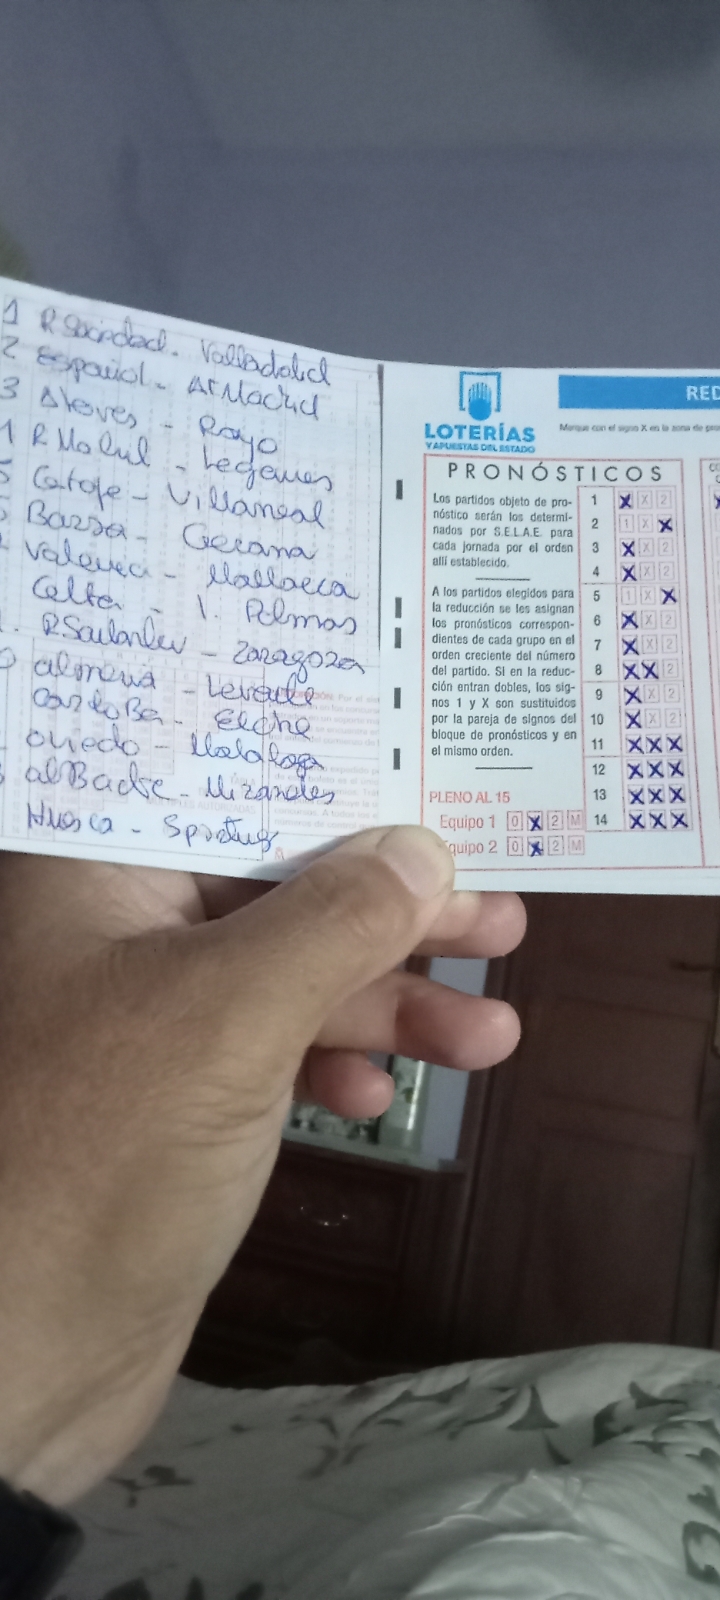 1 R Sociedad. Valladolid
2 Español - At Madrid
3 Alaves - Rayo
R Madrid - Leganes
Getafe - Villarreal
Barsa - Gerona
Valencia - Mallorca
Celta - Palmas
R Santander - Zaragoza
Almeria - Levante
Cordoba - Elche
Oviedo - Malalaga
albacte - Mirandes
Huesca - Sporting
LOTERÍAS
Y APUESTAS DEL ESTADO
RED
Marque con el signo X en la zona de
PRONÓSTICOS
Los partidos objeto de pro-
nóstico serán los determi-
nados por S.E.L.A.E. para
cada jornada por el orden
allí establecido.
A los partidos elegidos para
la reducción se les asignan
los pronósticos correspon-
dientes de cada grupo en el
orden creciente del número
del partido. Si en la reduc-
ción entran dobles, los sig-
nos 1 y X son sustituidos
por la pareja de signos del
bloque de pronósticos y en
el mismo orden.
1 X X 2
2 1 X X
3 X X 2
4 X X 2
5 1 X X
6 X X 2
7 X X 2
8 X X 2
9 X X 2
10 X X 2
11 X X X
12 X X X
13 X X X
14 X X X
PLENO AL 15
Equipo 1 0 X 2 M
quipo 2 0 X 2 M